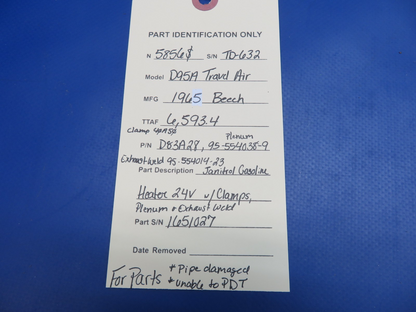 PART IDENTIFICATION ONLY
N 5856$ S/N TD-632
Model D95A Travel Air
MFG 1965 Beech
TTAF 6,593.4
Clamp Plenum
P/N D83A28, 95-554038-9
Exhaust Weld 95-554014-23
Part Description Janitrol Gasoline
Heater 24V w/Clamps,
Plenum + Exhaust Weld
Part S/N 1651027
Date Removed
For Parts * Pipe damaged
* unable to PDT